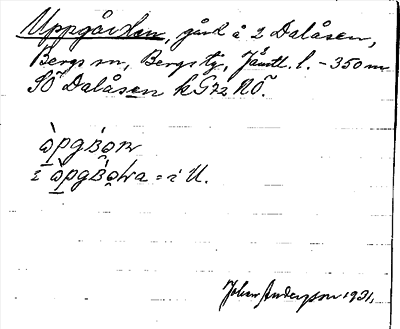 Uppgården, gård å 2 Dalåsen,
Bergs sn, Bergs tg, Jämtl. l. - 350 m
SÖ Dalåsen kG72 RÖ.
i = i U.
Johan Anderson 1931.